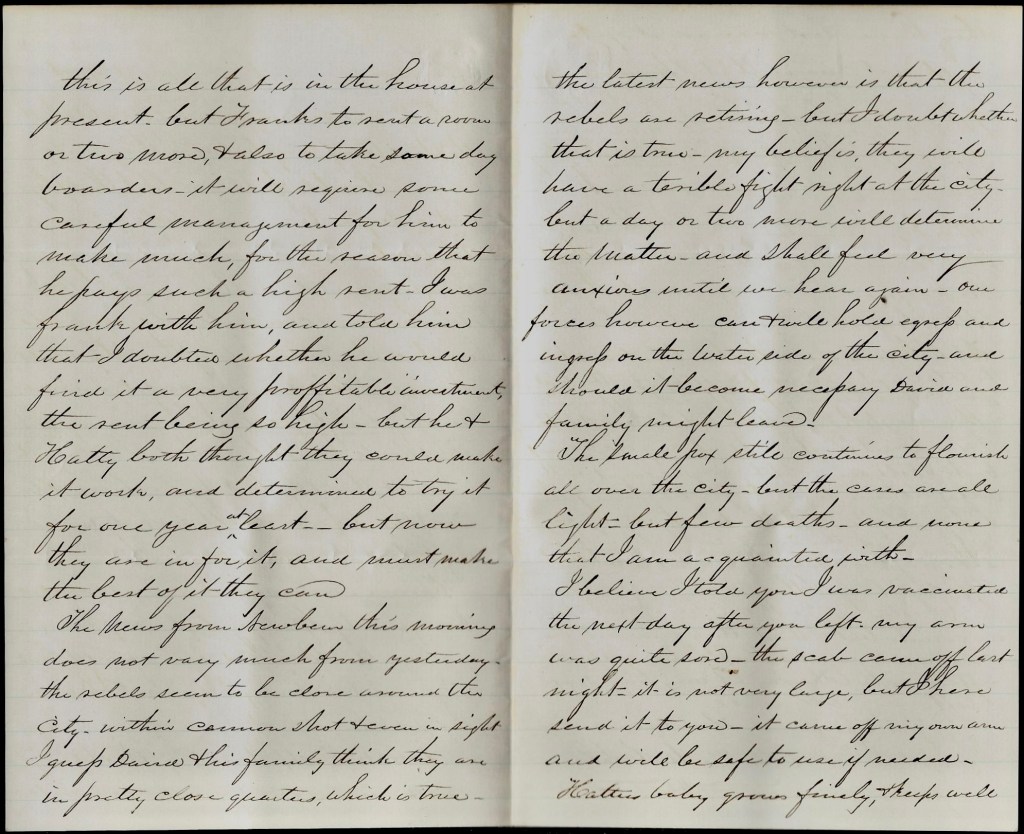 this is all that is in the house at
present - but Frank's to rent a room
or two more, & also to take some day
boarders - it will require some
careful management for him to
make much, for the reason that
he pays such a high rent - I was
frank with him, and told him
that I doubted whether he would
find it a very proffitable investment,
the rent being so high - but he &
Hatty both thought they could make
it work, and determined to try it
for one year at least - - but now
they are in for it, and must make
the best of it they can
The News from Newbern this morning
does not vary much from yesterday -
the rebels seem to be close around the
City - within cannon shot & even in sight
I guess David & his family think they are
in pretty close quarters, which is true -
the latest news however is that the
rebels are retiring - but I doubt whether
that is true - my belief is, they will
have a terible fight right at the city -
but a day or two more will determine
the matter - and shall feel very
anxious until we hear again - our
forces however can & will hold egress and
ingress on the water side of the city - and
should it become necessary David and
family might leave -
The Smale pox still continues to flourish
all over the city - but the cases are all
light - but few deaths - and none
that I am acquainted with -
I believe I told you I was vaccinated
the next day after you left - my arm
was quite sore - the scab came off last
night - it is not very large, but I here
send it to you - it came off my own arm
and will be safe to use if needed -
Hatties baby grows finely, & keeps well